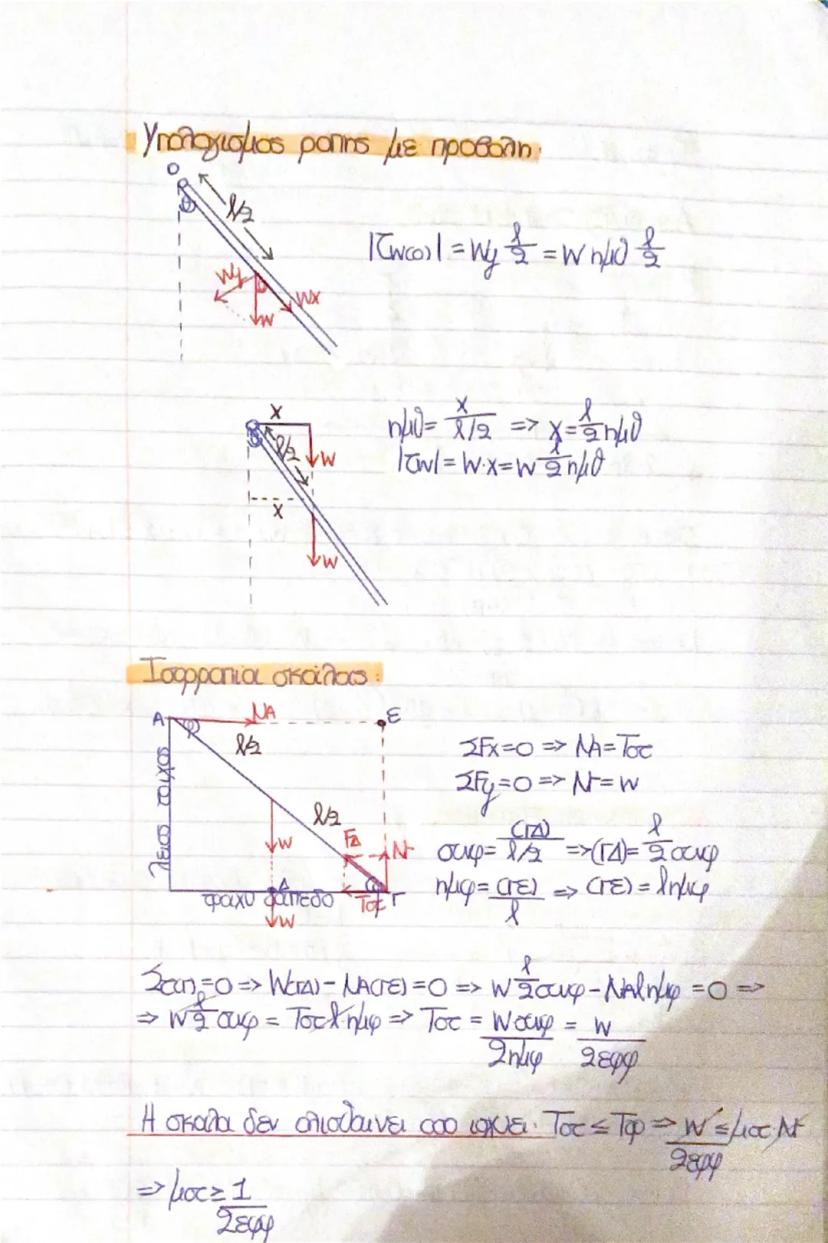 Υπολογισμος ροπης με προβολη:
O
θ
l/2
Wy
Wx
W
|τw(o)| = Wy l/2 = W ημθ l/2
x
l/2
θ
W
x
W
ημθ = x/(l/2) => x = l/2 ημθ
|τw| = W·x = W l/2 ημθ
Ισορροπια σκαλας:
A
NA
E
φ
l/2
l/2
W
FΔ
N
Δ
φ
Tσ
Γ
W
λειος τοιχος
τραχυ δαπεδο
ΣFx=0 => NA=Tσ
ΣFy=0 => N=W
συνφ = (ΓΔ)/(l/2) => (ΓΔ) = l/2 συνφ
ημφ = (ΓΕ)/l => (ΓΕ) = lημφ
Στ(Γ)=0 => W(ΓΔ) - NA(ΓΕ) = 0 => W l/2 συνφ - NAlημφ = 0 =>
=> W l/2 συνφ = Tσ l ημφ => Tσ = Wσυνφ/2ημφ = W/2εφφ
Η σκαλα δεν ολισθαινει οσο ισχυει: Tσ ≤ Tορ => W/2εφφ ≤ μσ N
=> μσ ≥ 1/2εφφ